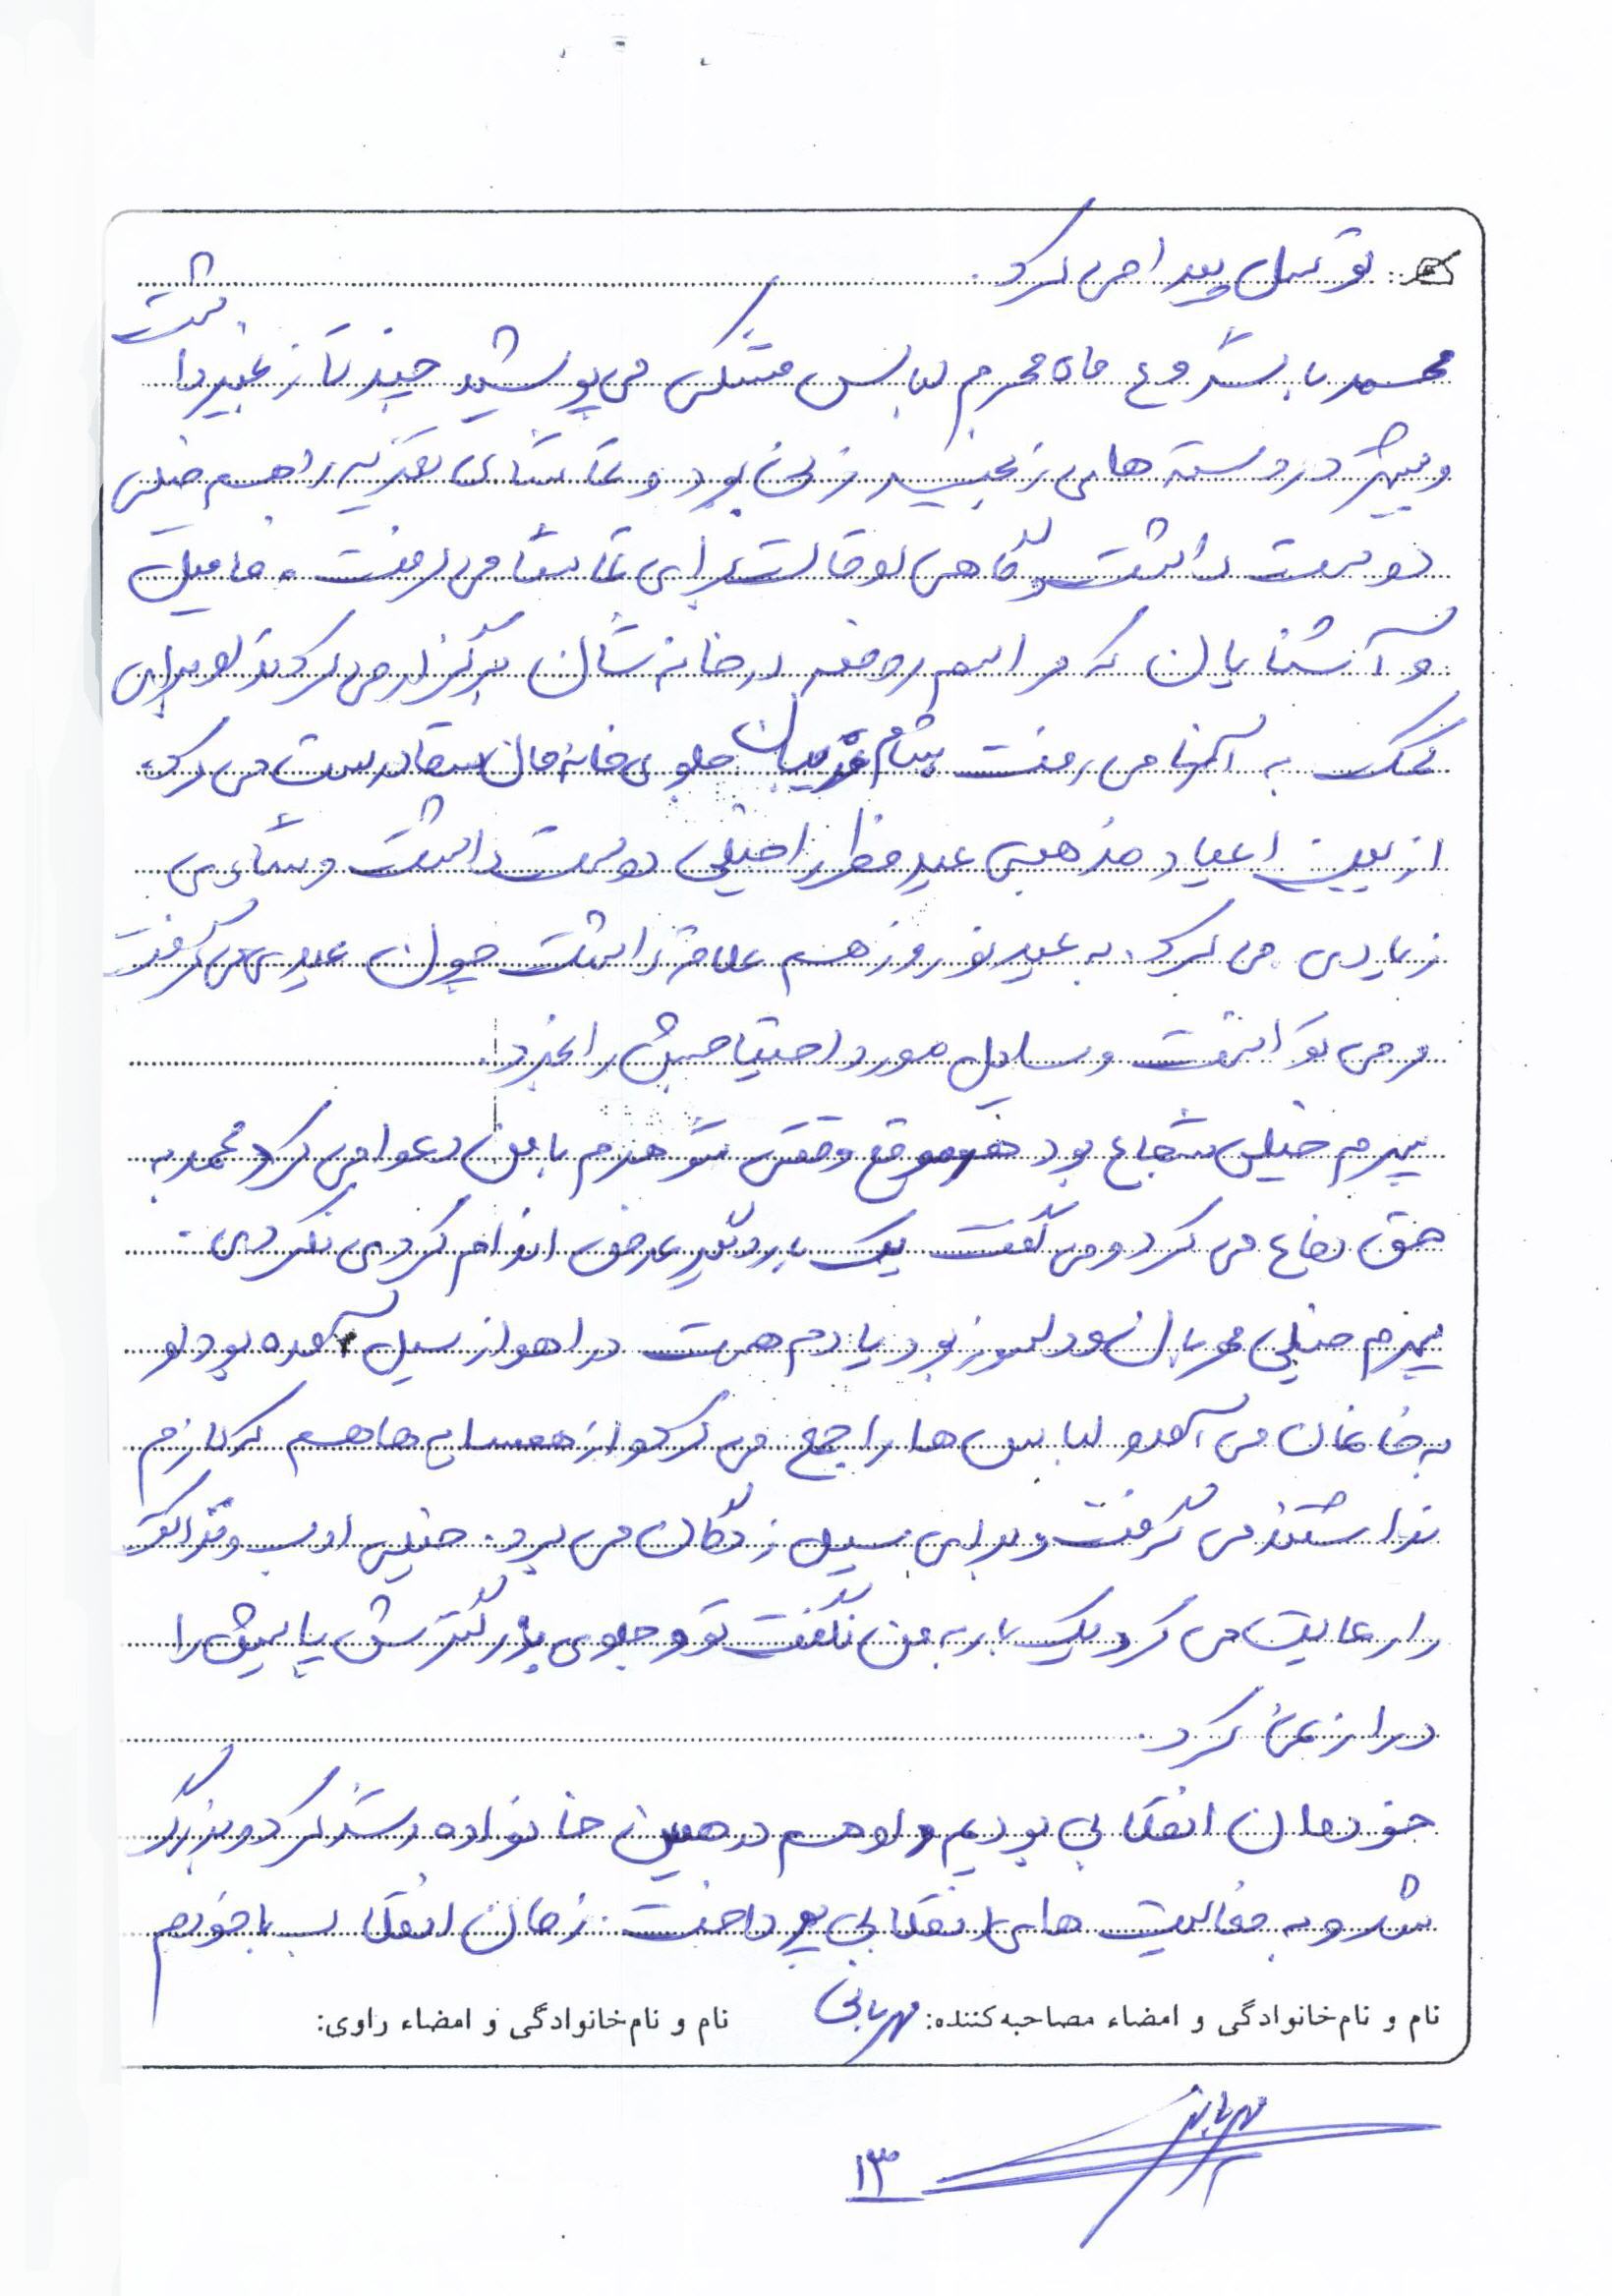 توسل پیدا می کرد.
محمد با شروع ماه محرم لباس مشکی می پوشید چند تا زنجیر داشت
و بیشتر در دسته های زنجیر زنی بود و تماشای تعزیه را هم خیلی
دوست داشت و گاهی اوقات برای تماشا می رفت. فامیل
و آشنایان که مراسم روضه در خانه شان برگزار می کردند او برای
کمک به آنها می رفت شام غریبان جلوی خانه مان سقا درست می کرد.
از بین اعیاد مذهبی عید فطر را خیلی دوست داشت و شادی
زیادی می کرد. به عید نوروز هم علاقه داشت چون عیدی می گرفت
و می توانست وسایل مورد احتیاجش را بخرد.
پسرم خیلی شجاع بود هر موقع وقتی شوهرم با من دعوا می کرد محمد به
حق دفاع می کرد و می گفت یک بار دیگر عرض اندام کردی نکردی.
پسرم خیلی مهربان و دلسوز بود یادم هست در اهواز سیل آمده بود او
به خانمان می آمد و لباس ها را جمع می کرد و از همسایه ها هم که لازم
نداشتند می گرفت و برای سیل زدگان می برد. خیلی ادب و نزاکت
را رعایت می کرد یک بار به من نگفت تو و جلوی بزرگترش پایش را
دراز نمی کرد.
خودمان انقلابی بودیم و او هم در همین خانواده رشد کرد و بزرگ
شد و به فعالیت های انقلابی پرداخت. زمان انقلاب با خودم
نام و نام خانوادگی و امضاء مصاحبه کننده: مهربانی نام و نام خانوادگی و امضاء راوی:
مهربانی
۱۳